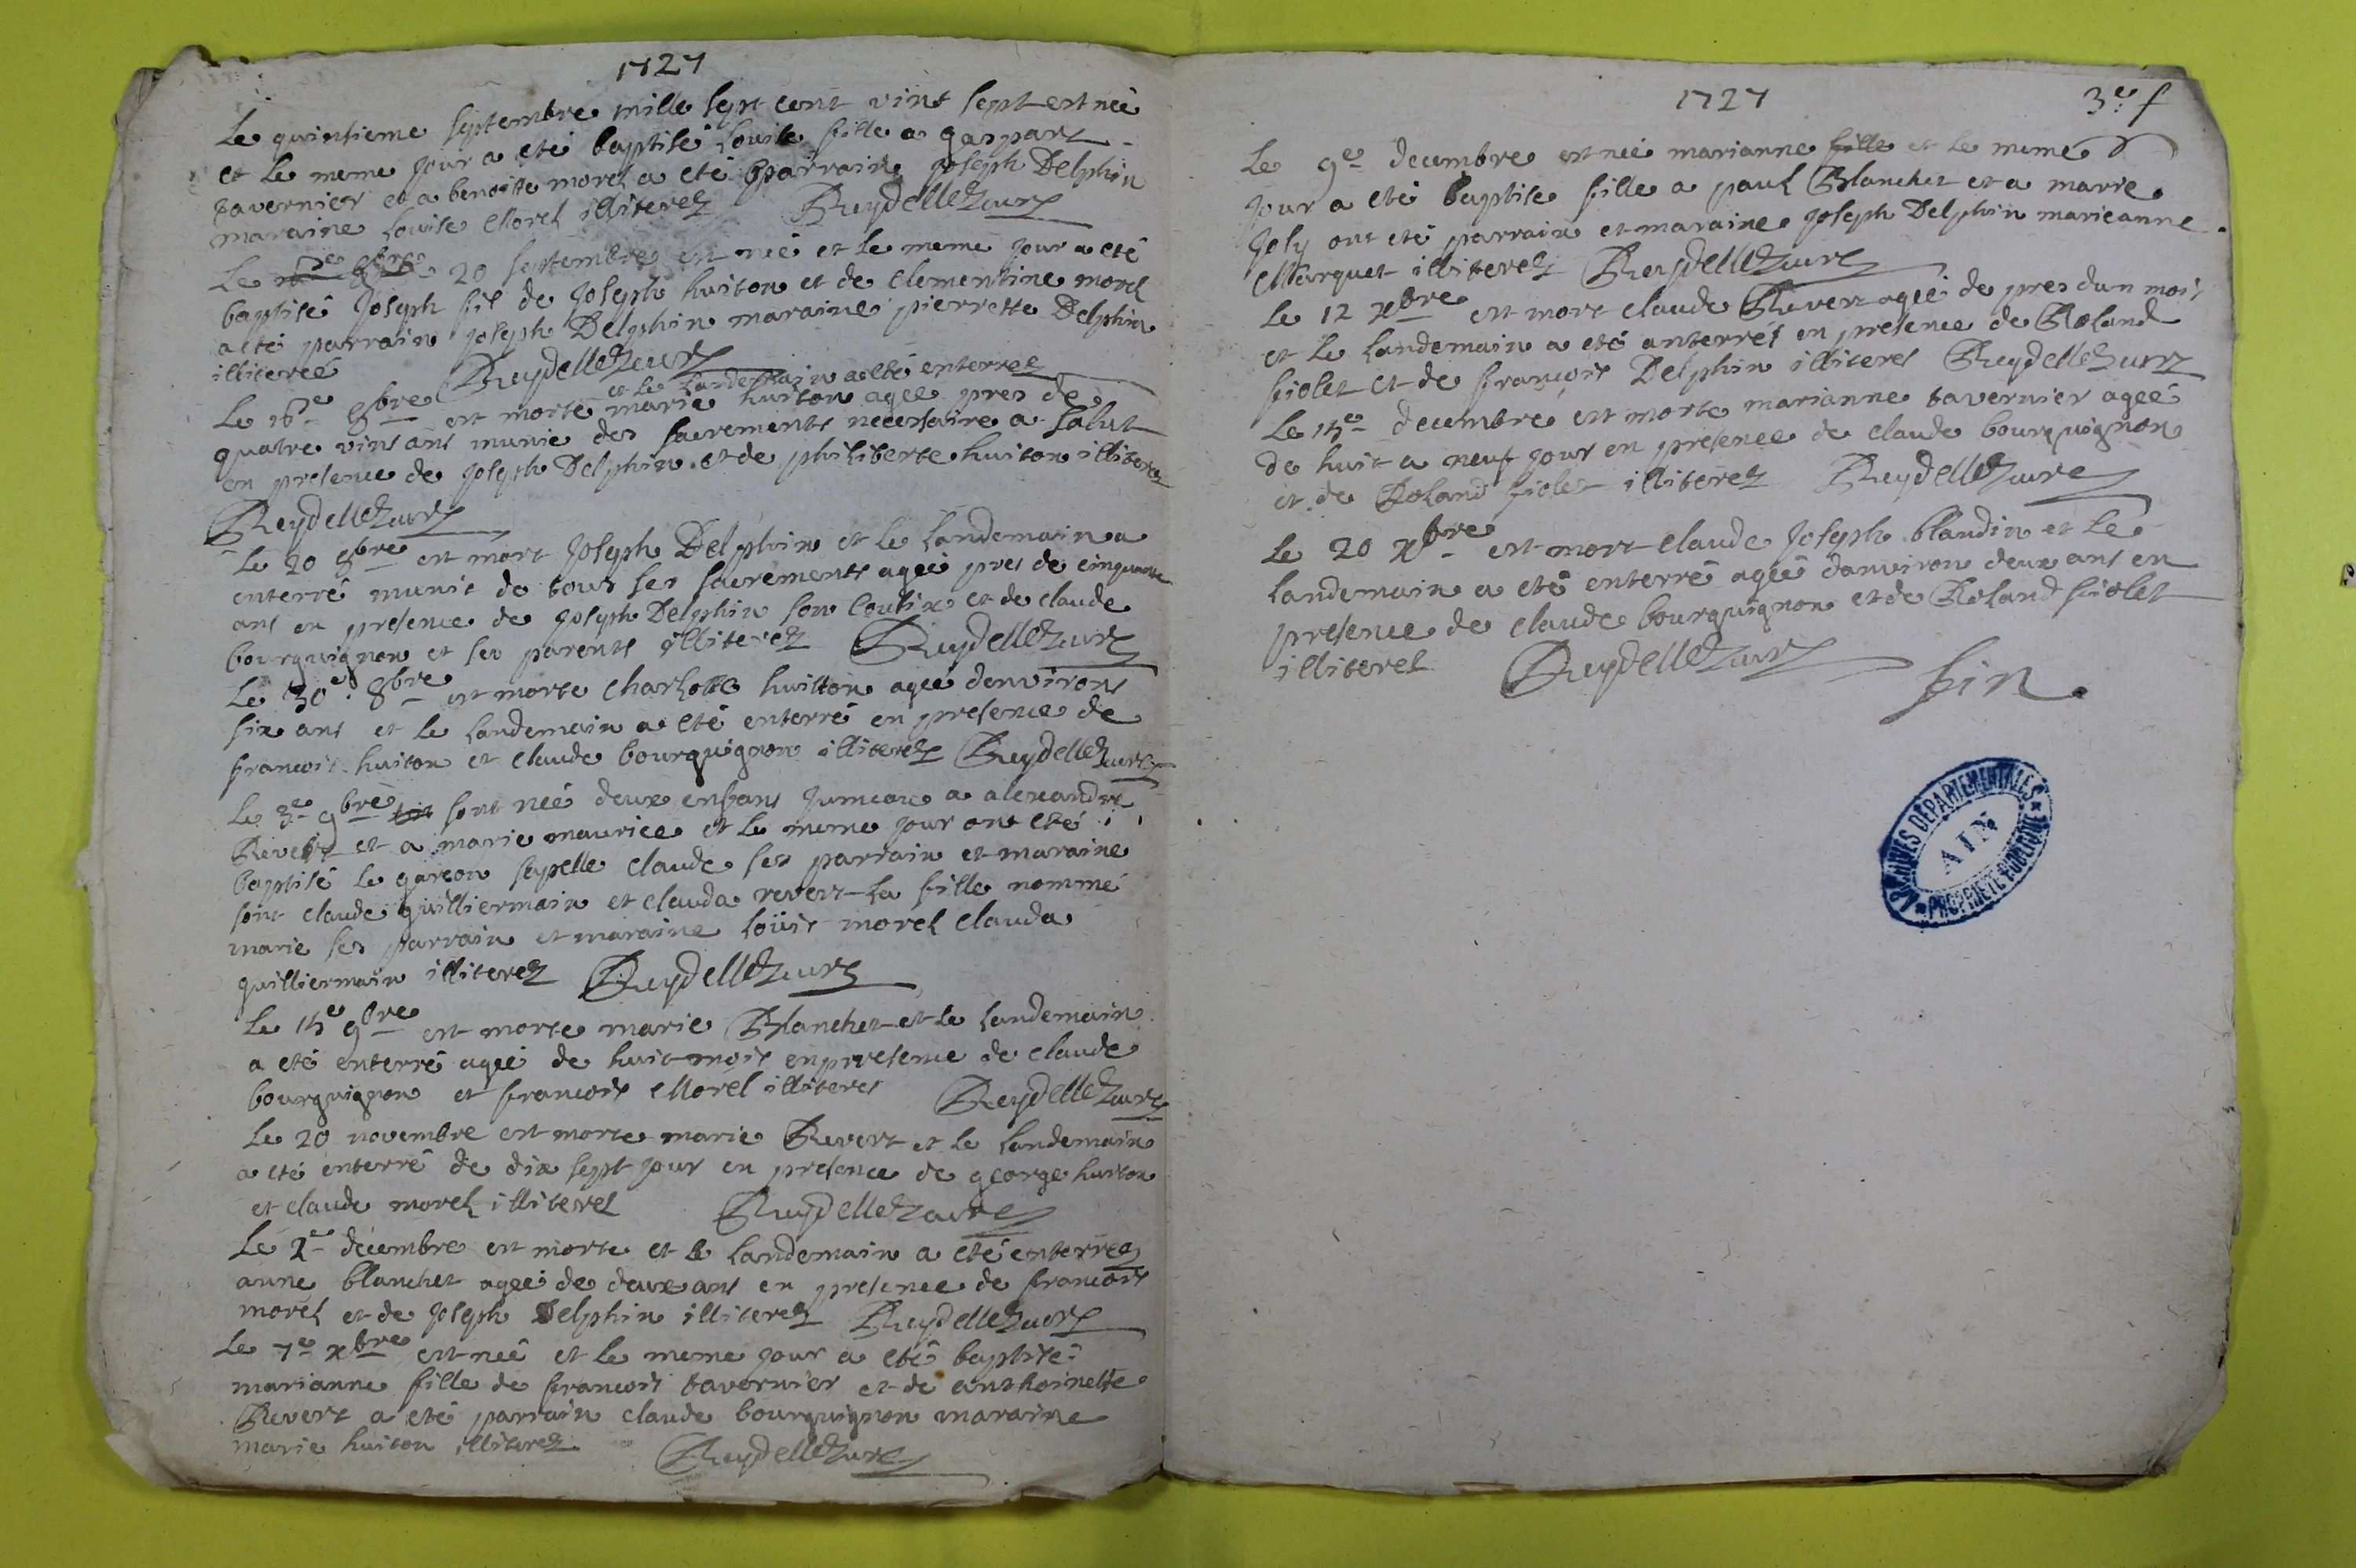 1727
Le quinsieme septembre mille sept cent vint sept est neé
et le meme jour a eté baptisé Louise fille a gaspart
tavernier et a benoitte morel a eté parrain joseph Delphin
maraine Louise Morel illiterez Reydellet curé
Le 20 septembre est né et le meme jour a eté
baptisé joseph fil de joseph huiton et de clementine morel
a eté parrain joseph Delphin maraine pierrette Delphin
illiteré Reydellet curé
et le landemain a eté enterrez
Le 16e 8bre est morte marie huiton ageé pres de
quatre vins ans munie des sacrements necessaire a salut
en presence de joseph Delphin et de philiberte huiton illiterez
Reydellet curé
Le 20 8bre est mort joseph Delphin et le landemain a
enterré munit de tous ses sacrements ageé pres de cinquante
ans en presence de joseph Delphin son cousin et de claude
bourguignon et ses parents illiterez Reydellet curé
Le 30e 8bre est morte Charlotte huitton ageé denvirons
six ans et le landemain a eté enterré en presence de
francois huiton et claude bourguignon illiterez Reydellet curé
Le 3e 9bre sont neé deux enfans jumeaux a alexandre
Revert et a marie maurice et le meme jour ont eté
baptisé le garcon sapelle claude ses parrain et maraine
sont claude guilliermain et clauda revert la fille nommé
marie ses parrain et maraine loüis morel clauda
guilliermain illiterez Reydellet curé
Le 15e 9bre est morte marie Blanchet et le landemain
a eté enterré ageé de huit mois en presence de claude
bourguignon et francois Morel illiteres Reydellet curé
Le 20 novembre est morte marie Revert et le landemain
a eté enterré de dix sept jour en presence de george huiton
et claude morel illiterel Reydellet curé
Le 2e decembre est morte et le landemain a eté enterrez
anne blanchet ageé de deux ans en presence de francois
morel et de joseph Delphin illiterez Reydellet curé
Le 7e xbre est neé et le meme jour a eté baptisé
marianne fille de francois tavernier et de anthoinette
Revert a eté parrain claude bourguignon maraine
marie huiton illiterez Reydellet curé
1727 3e f
Le 9e decembre est neé marianne fille et le meme
jour a eté baptise fille a paul Blanchet et a marie
joly ont eté parrain et maraine joseph Delphin marieanne
Marquet illiterez Reydellet curé
Le 12 xbre est mort claude Revert ageé de pres dun mois
et le landemain a eté anterrés en presence de Roland
fiolet et de francois Delphin illiteres Reydellet curé
Le 15e decembre est morte marianne tavernier ageé
de huit a neuf jour en presence de claude bourguignon
et de Roland fiolet illiterez Reydellet curé
Le 20 xbre est mort claude joseph blandin et le
landemain a eté enterré ageé danviron deux ans en
presence de claude bourguignon et de Roland fiolet
illiterel Reydellet curé
fin
ARCHIVES DÉPARTEMENTALES
AIN
PROPRIÉTÉ PUBLIQUE